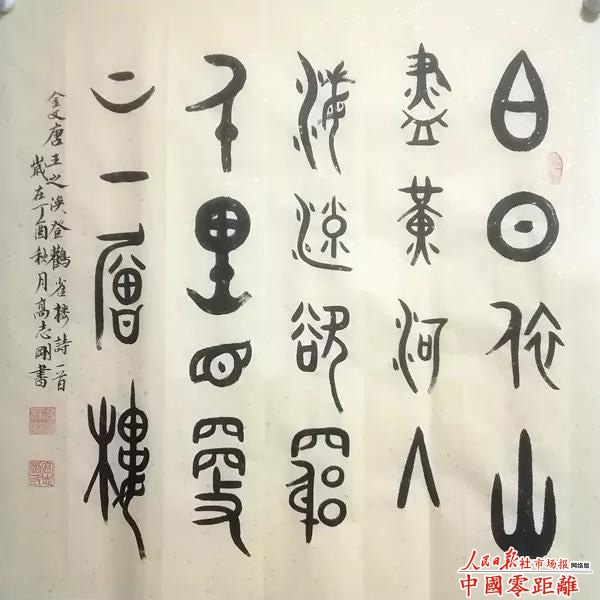 白日依山
盡黃河入
海流欲窮
千里目更
上一層樓
金文唐王之渙登鸛雀楼詩一首
歲在丁酉秋月高志剛書
人民日报社市场报 网络版
中國零距離